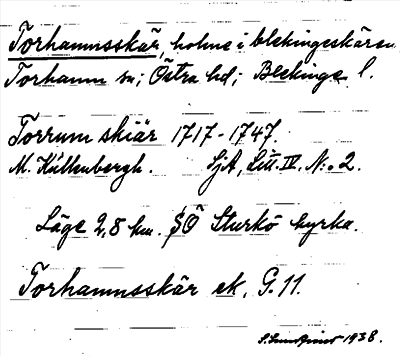 Torhamnsskär, holme i Blekingeskären
Torhamn sn; Östra hd; Blekinge l.
Torrum skiär 1717-1747.
M. Kullenbergh. SjA, Litt. IV. N:o 2.
Läge 2,8 km. SÖ Sturkö kyrka.
Torhamnsskär ek. G. 11.
1938.